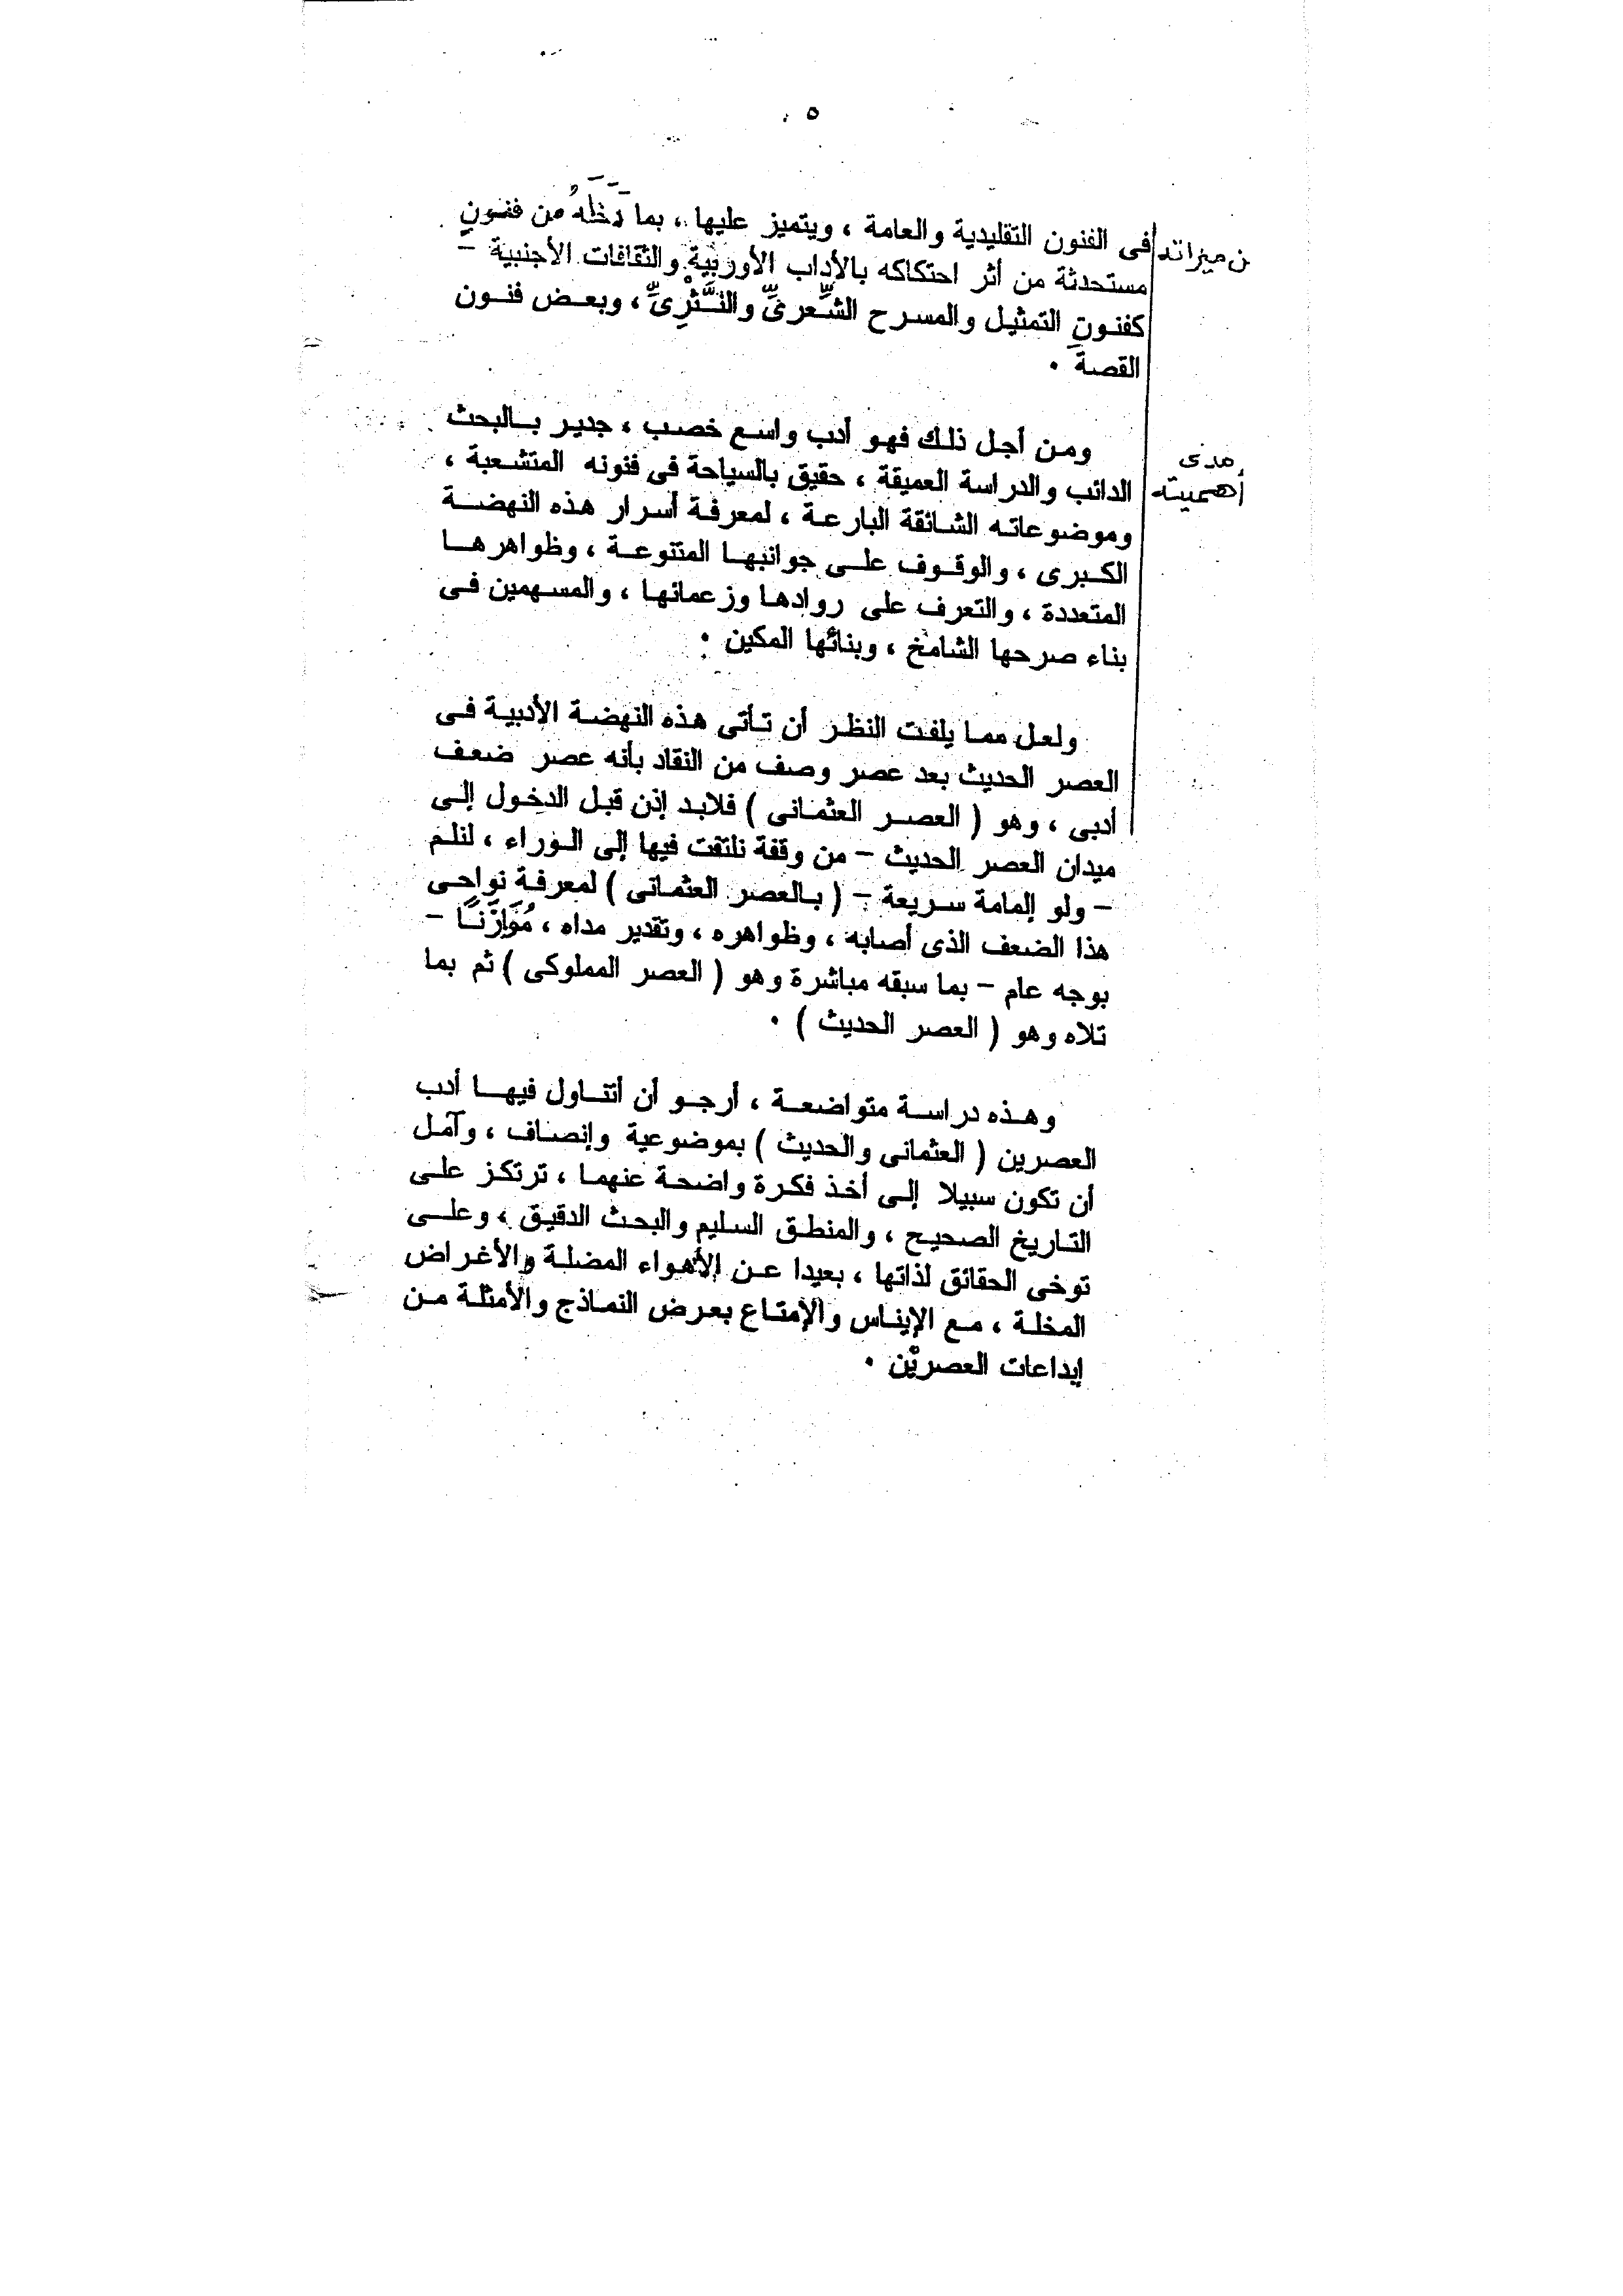 ٥
فى الفنون التقليدية والعامة ، ويتميز عليها ، بما دَخَلَهُ من فنونٍ
من ميزاته
مستحدثة من أثر احتكاكه بالأداب الأوربية والثقافات الأجنبية –
كفنونِ التمثيل والمسرح الشِّعرىِّ والنَّثْرِىِّ ، وبعض فنون
القصة .
ومن أجل ذلك فهو أدب واسع خصب ، جدير بالبحث
مدى
الدائب والدراسة العميقة ، حقيق بالسياحة فى فنونه المتشعبة ،
أهميته
وموضوعاته الشائقة البارعة ، لمعرفة أسرار هذه النهضة
الكبرى ، والوقوف على جوانبها المتنوعة ، وظواهرها
المتعددة ، والتعرف على روادها وزعمائها ، والمسهمين فى
بناء صرحها الشامخ ، وبنائها المكين .
ولعل مما يلفت النظر أن تأتى هذه النهضة الأدبية فى
العصر الحديث بعد عصر وصف من النقاد بأنه عصر ضعف
أدبى ، وهو ( العصر العثمانى ) فلابد إذن قبل الدخول إلى
ميدان العصر الحديث – من وقفة نلتفت فيها إلى الوراء ، لنلم
– ولو إلمامة سريعة – ( بالعصر العثمانى ) لمعرفة نواحى
هذا الضعف الذى أصابه ، وظواهره ، وتقدير مداه ، مُوَازَنًا –
بوجه عام – بما سبقه مباشرة وهو ( العصر المملوكى ) ثم بما
تلاه وهو ( العصر الحديث ) .
وهذه دراسة متواضعة ، أرجو أن أتناول فيها أدب
العصرين ( العثمانى والحديث ) بموضوعية وإنصاف ، وآمل
أن تكون سبيلا إلى أخذ فكرة واضحة عنهما ، ترتكز على
التاريخ الصحيح ، والمنطق السليم والبحث الدقيق ، وعلى
توخى الحقائق لذاتها ، بعيدا عن الأهواء المضلة والأغراض
المخلة ، مع الإيناس والإمتاع بعرض النماذج والأمثلة من
إبداعات العصريْن .